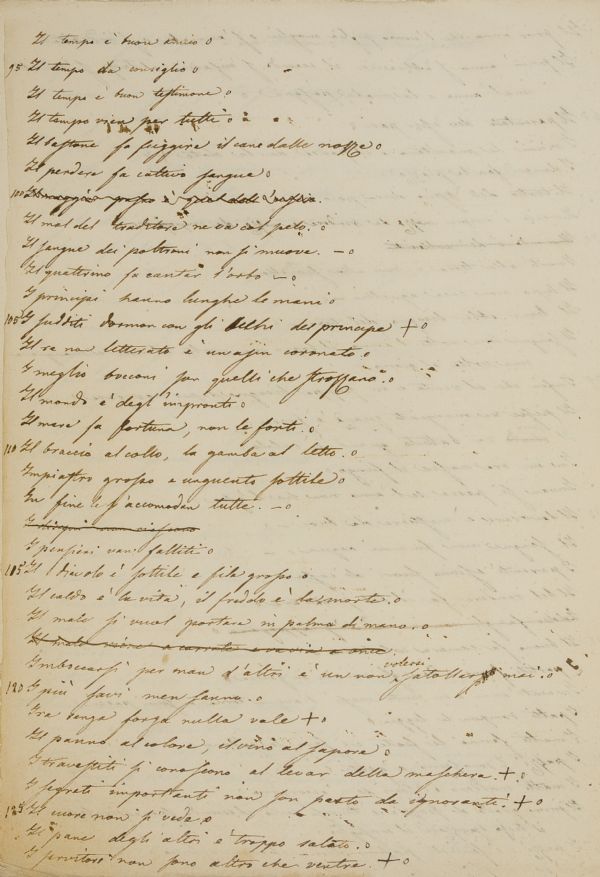 Il tempo è buon amico o
95 Il tempo da consiglio o
Il tempo è buon testimone o
Il tempo vien per tutti o
Il bastone fa fuggire il cane dalle nozze o
Il perdere fa cattivo sangue o
100 Il grasso è
Il mal del traditore ne va col peto. o
Il sangue dei poltroni non si muove. – o
Il quattrino fa cantar l'orbo – o
I principi hanno lunghe le mani o
105 I sudditi dormon con gli occhi del principe + o
Il re non letterato è un asin coronato. o
I meglio bocconi son quelli che strozzano. o
Il mondo è degl'impronti o
Il mare fa fortuna, non le fonti. o
110 Il braccio al collo, la gamba al letto. o
Impiastro grosso e unguento sottile o
In fine le s'accomodan tutte. – o
I disegni non riescono
I pensieri van falliti o
115 Il diavolo è sottile e fila grosso o
Il caldo è la vita, il freddo è la morte. o
Il male si vuol portare in palma di mano. o
Il male viene a carrate e va via a once
Imboccarsi per man d'altri è un non volersi satollar mai. o
120 I più savi men sanno. o
Ira senza forza nulla vale + o
Il panno al colore, il vino al sapore o
I travestiti si conoscono al levar della maschera. + o
I segreti importanti non son pasto da ignoranti. + o
125 Il cuore non si vede o
Il pane degli altri è troppo salato. o
I servitori non sono altro che ventre. + o